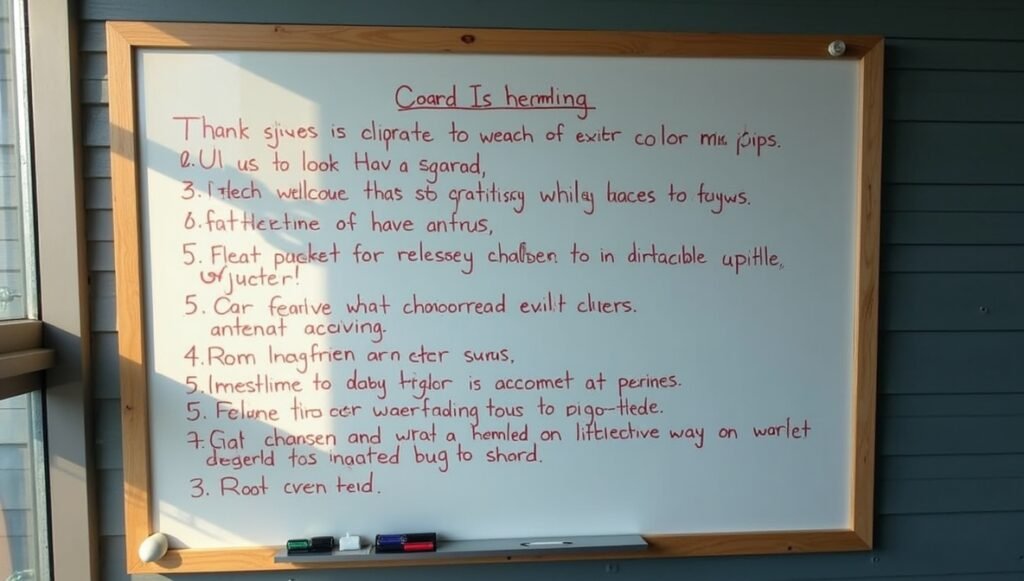 Coard Is hermling
Thank sjives is cliprate to weach of exitr color mis pips.
2. Ul us to look Hav a sgarad,
3. itlech wellcoue thas so gratitisxy whilsy baces to fuyws.
6. fattlectine of have antrus,
5. Fleat pucket for relessey chalben to in dirtacible upitlle,
jucter!
5. Car fearive what chomoorread evilit cluers.
antenat accuving.
4. Rom Inagfrien arn cter surus,
5. Imestlime to daby triglor is accomet at perines.
5. Felune tiro cer waerfading tous to pigo-tlede.
7. Gat chansen and wrat a hemled on litblective way on warlet
degerld tos inqated bug to shard.
3. Root cven teid.